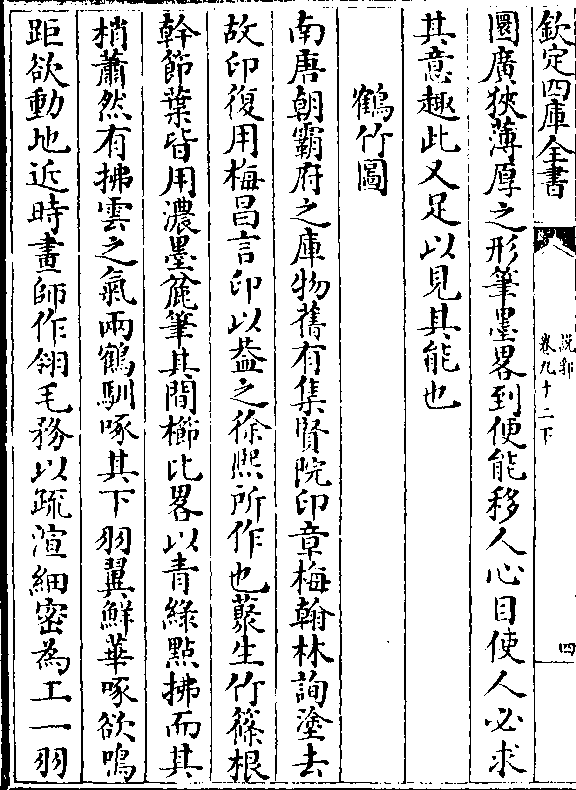 欽定四庫全書
說郛
卷九十二下
四
圜廣狹薄厚之形筆墨畧到便能移人心目使人必求
其意趣此又足以見其能也
鶴竹圖
南唐朝霸府之庫物舊有集賢院印章梅翰林詢塗去
故印復用梅昌言印以葢之徐熈所作也藂生竹篠根
幹節葉皆用濃墨麄筆其間櫛比畧以青綠點拂而其
梢蕭然有拂雲之氣兩鶴馴啄其下羽翼鮮華啄欲鳴
距欲動地近時畫師作翎毛務以疏渲細密為工一羽